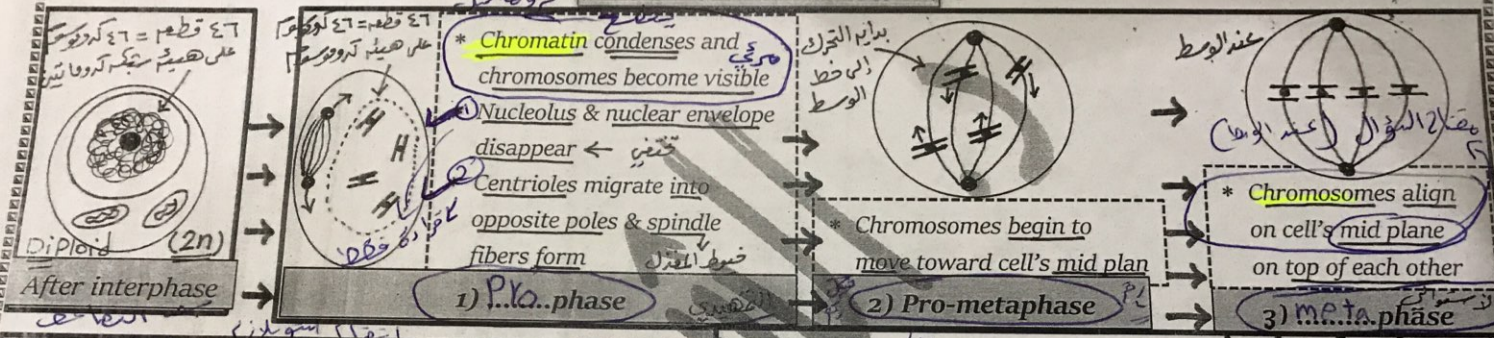 ٤٦ قطعه = ٤٦ كروموسوم
على هيئة شبكه كروماتين
Diploid (2n)
After interphase
٤٦ قطعه = ٤٦ كروموسوم
على هيئه كروموسوم
* Chromatin condenses and
مرئي
chromosomes become visible
1 Nucleolus & nuclear envelope
disappear ← تختفي
2 Centrioles migrate into
opposite poles & spindle
fibers form خيوط المغزل
قراءة فقط
1) Pro phase التمهيدي
بداية التحرك
إلى خط
الوسط
* Chromosomes begin to
move toward cell's mid plan
2) Pro-metaphase
عند الوسط
مفتاح السؤال (عند الوسط)
* Chromosomes align
on cell's mid plane
on top of each other
3) meta phase